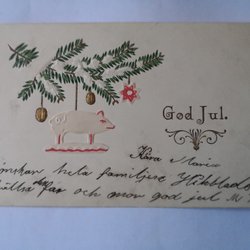 God Jul.
Kära Maria
önskan hela familjen
hälsa far och mor god jul